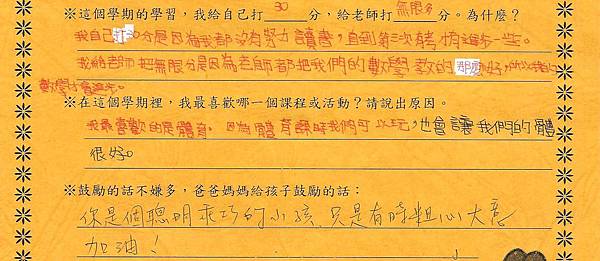 ※這個學期的學習，我給自己打30分，給老師打無限多分。為什麼？
我自己打30分是因為我都沒有努力讀書，直到第三次考有進步一些。
我給老師把無限分是因為老師都把我們的數學教的那麼好，所以我的
數學才會進步。
※在這個學期裡，我最喜歡哪一個課程或活動？請說出原因。
我最喜歡的是體育。因為體育課時我們可以玩，也會讓我們的體
很好。
※鼓勵的話不嫌多，爸爸媽媽給孩子鼓勵的話：
你是個聰明乖巧的小孩，只是有時粗心大意
加油！